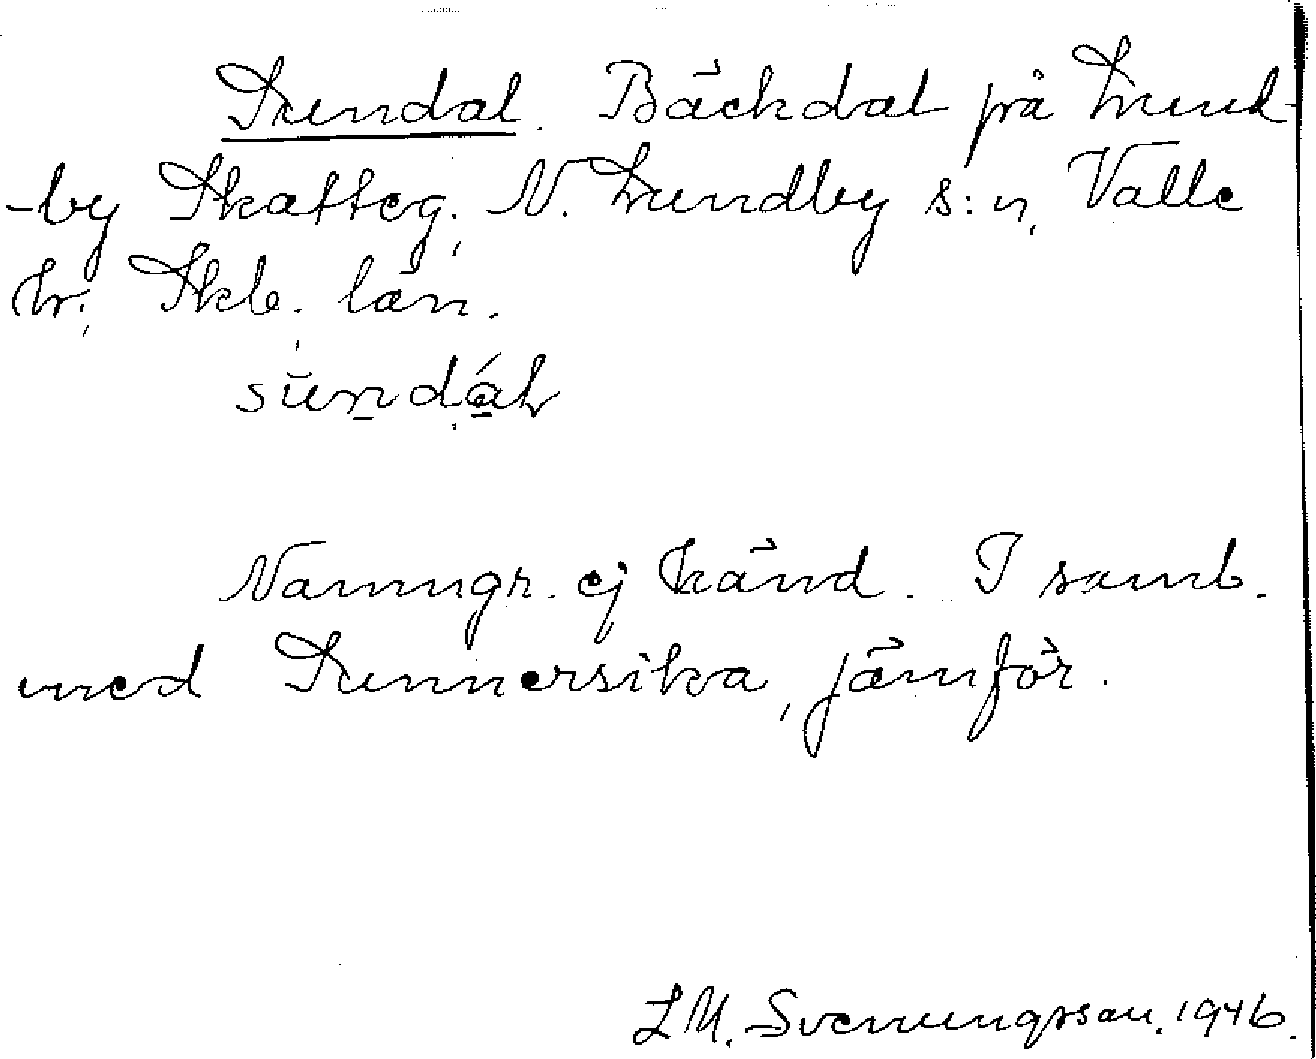 Sundal. Bäckdal på Lund-
-by Skatteg., N. Lundby s:n, Valle
hr, Skb. län.
sŭndáḷ
Namngr. ej känd. I samb.
med Sunnersika, jämför.
L M. Svenungsson. 1946.